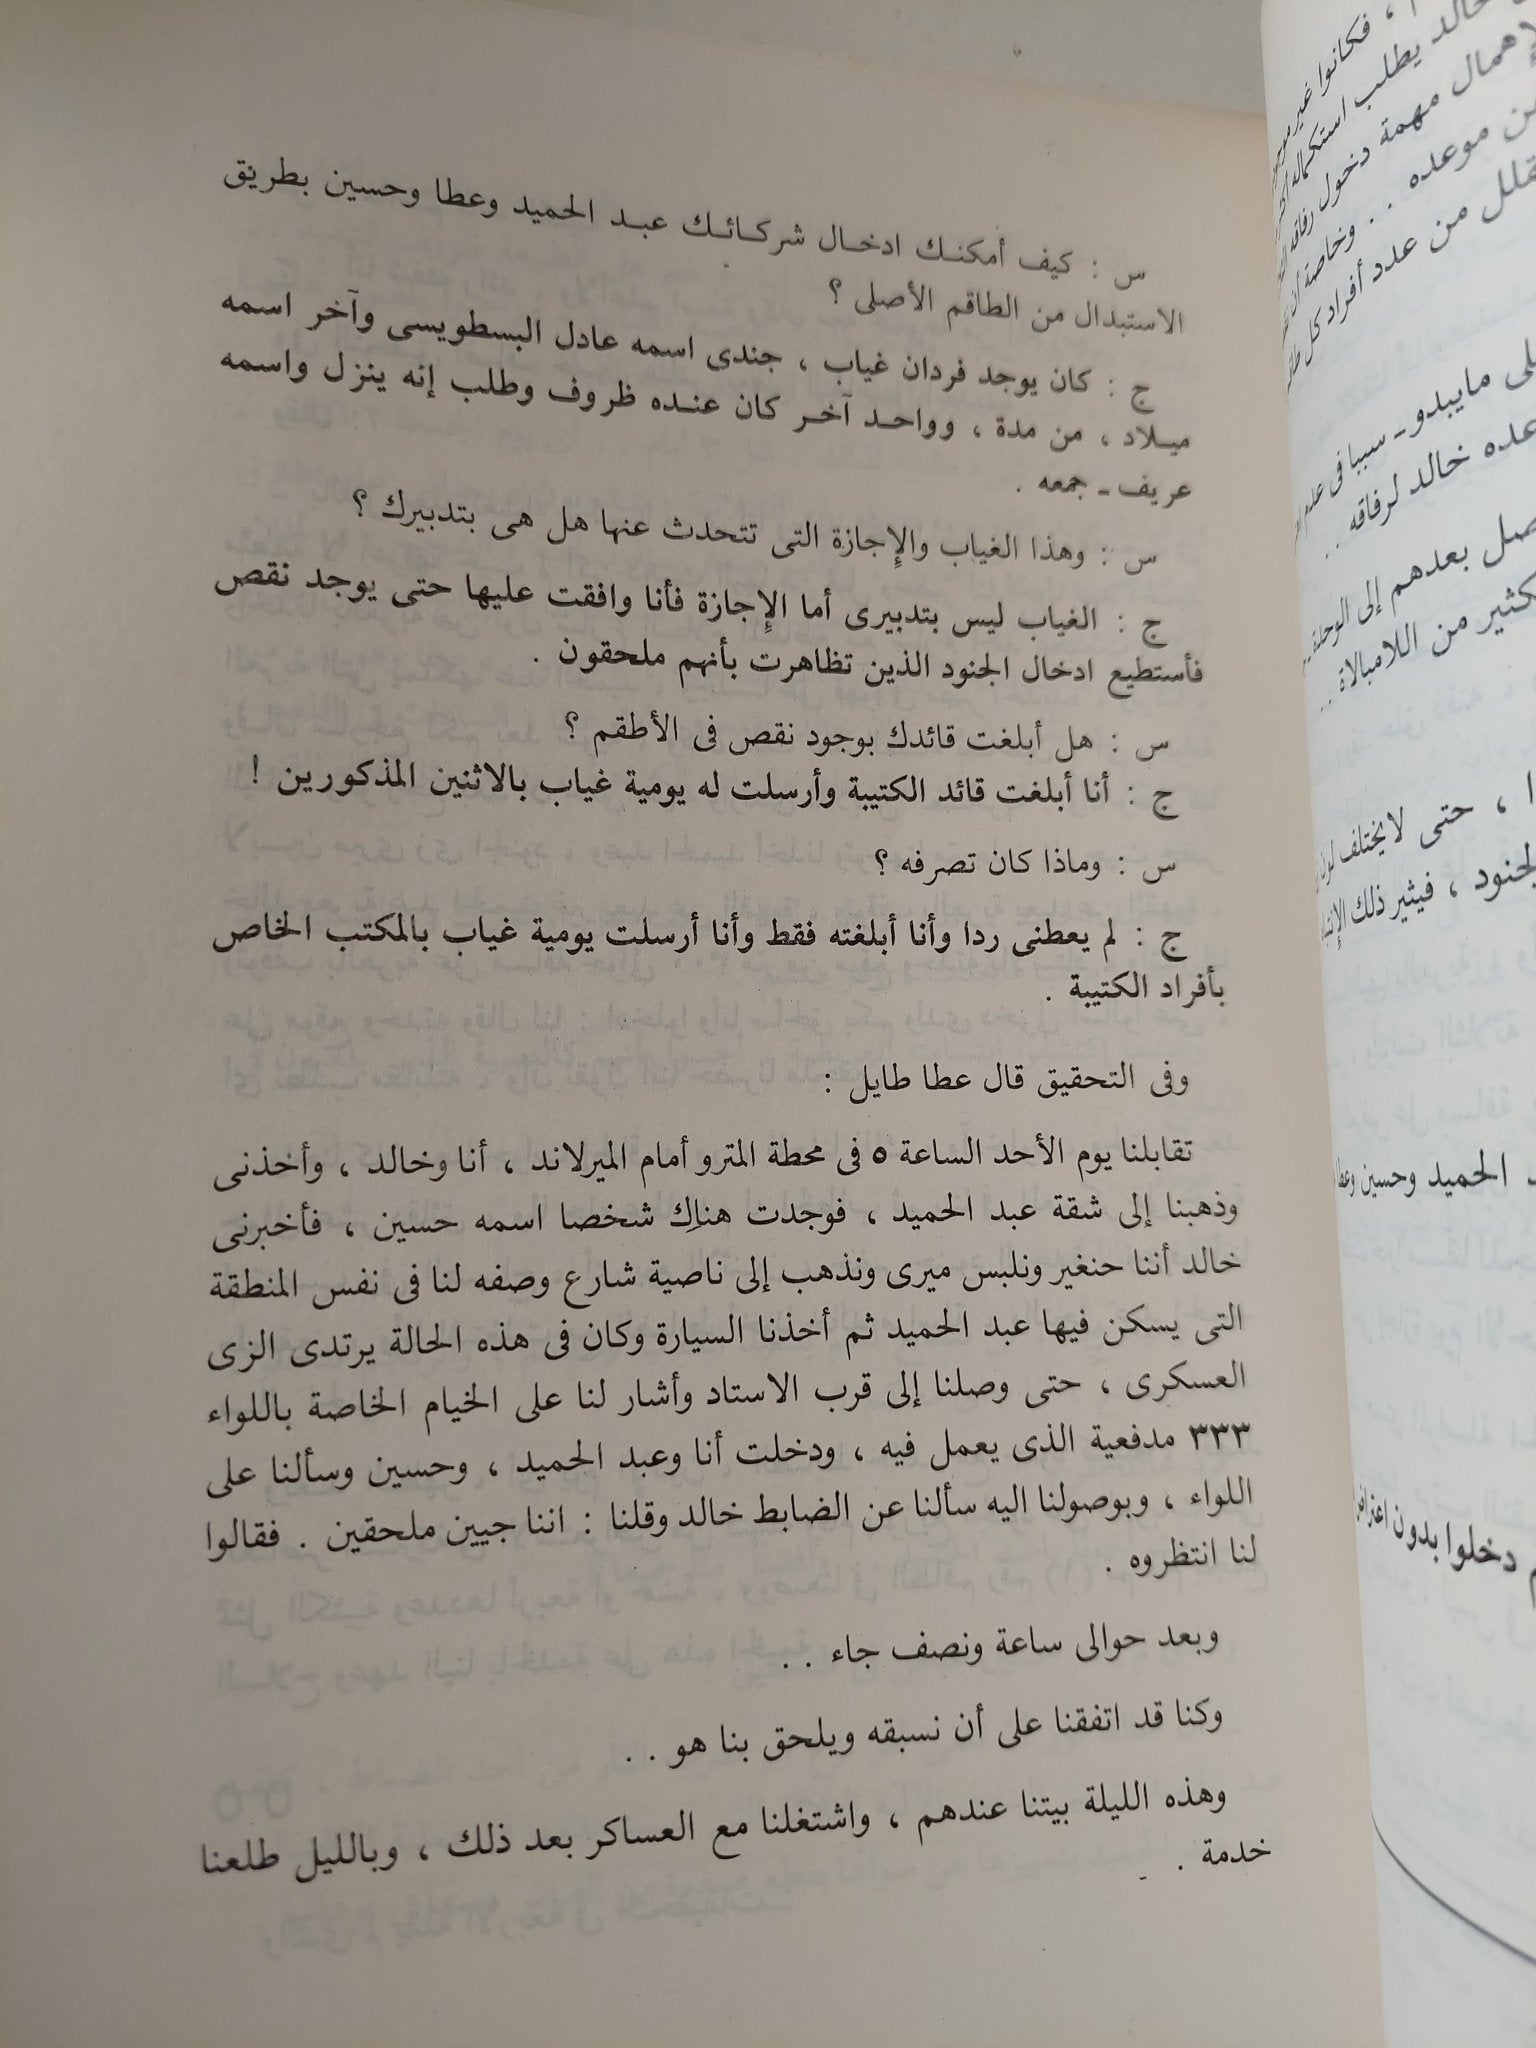 س : كيف أمكنك ادخال شركائك عبد الحميد وعطا وحسين بطريق
الاستبدال من الطاقم الأصلى ؟
ج : كان يوجد فردان غياب ، جندى اسمه عادل البسطويسى وآخر اسمه
ميلاد ، من مدة ، وواحد آخر كان عنده ظروف وطلب إنه ينزل واسمه
عريف ـ جمعه .
س : وهذا الغياب والإجازة التى تتحدث عنها هل هى بتدبيرك ؟
ج : الغياب ليس بتدبيرى أما الإجازة فأنا وافقت عليها حتى يوجد نقص
فأستطيع ادخال الجنود الذين تظاهرت بأنهم ملحقون .
س : هل أبلغت قائدك بوجود نقص فى الأطقم ؟
ج : أنا أبلغت قائد الكتيبة وأرسلت له يومية غياب بالاثنين المذكورين !
س : وماذا كان تصرفه ؟
ج : لم يعطنى ردا وأنا أبلغته فقط وأنا أرسلت يومية غياب بالمكتب الخاص
بأفراد الكتيبة .
وفى التحقيق قال عطا طايل :
تقابلنا يوم الأحد الساعة ٥ فى محطة المترو أمام الميرلاند ، أنا وخالد ، وأخذنى
وذهبنا إلى شقة عبد الحميد ، فوجدت هناك شخصا اسمه حسين ، فأخبرنى
خالد أننا حنغير ونلبس ميرى ونذهب إلى ناصية شارع وصفه لنا فى نفس المنطقة
التى يسكن فيها عبد الحميد ثم أخذنا السيارة وكان فى هذه الحالة يرتدى الزى
العسكرى ، حتى وصلنا إلى قرب الاستاد وأشار لنا على الخيام الخاصة باللواء
٣٣٣ مدفعية الذى يعمل فيه ، ودخلت أنا وعبد الحميد ، وحسين وسألنا على
اللواء ، وبوصولنا اليه سألنا عن الضابط خالد وقلنا : اننا جيين ملحقين . فقالوا
لنا انتظروه .
وبعد حوالى ساعة ونصف جاء . .
وكنا قد اتفقنا على أن نسبقه ويلحق بنا هو . .
وهذه الليلة بيتنا عندهم ، واشتغلنا مع العساكر بعد ذلك ، وبالليل طلعنا
خدمة .
، فكانوا غير
خالد يطلب استكمال
لإهمال مهمة دخول رفاقه
موعده . . وخاصة أن
قلل من عدد أفراد كل
لى مايبدو ـ سببا فى عدم
عده خالد لرفاقه . .
صل بعدهم إلى
كثير من اللامبالاة . .
ا ، حتى لا يختلف لون
لجنود ، فيثير ذلك
الحميد وحسين وعطا
دخلوا بدون اعتراض